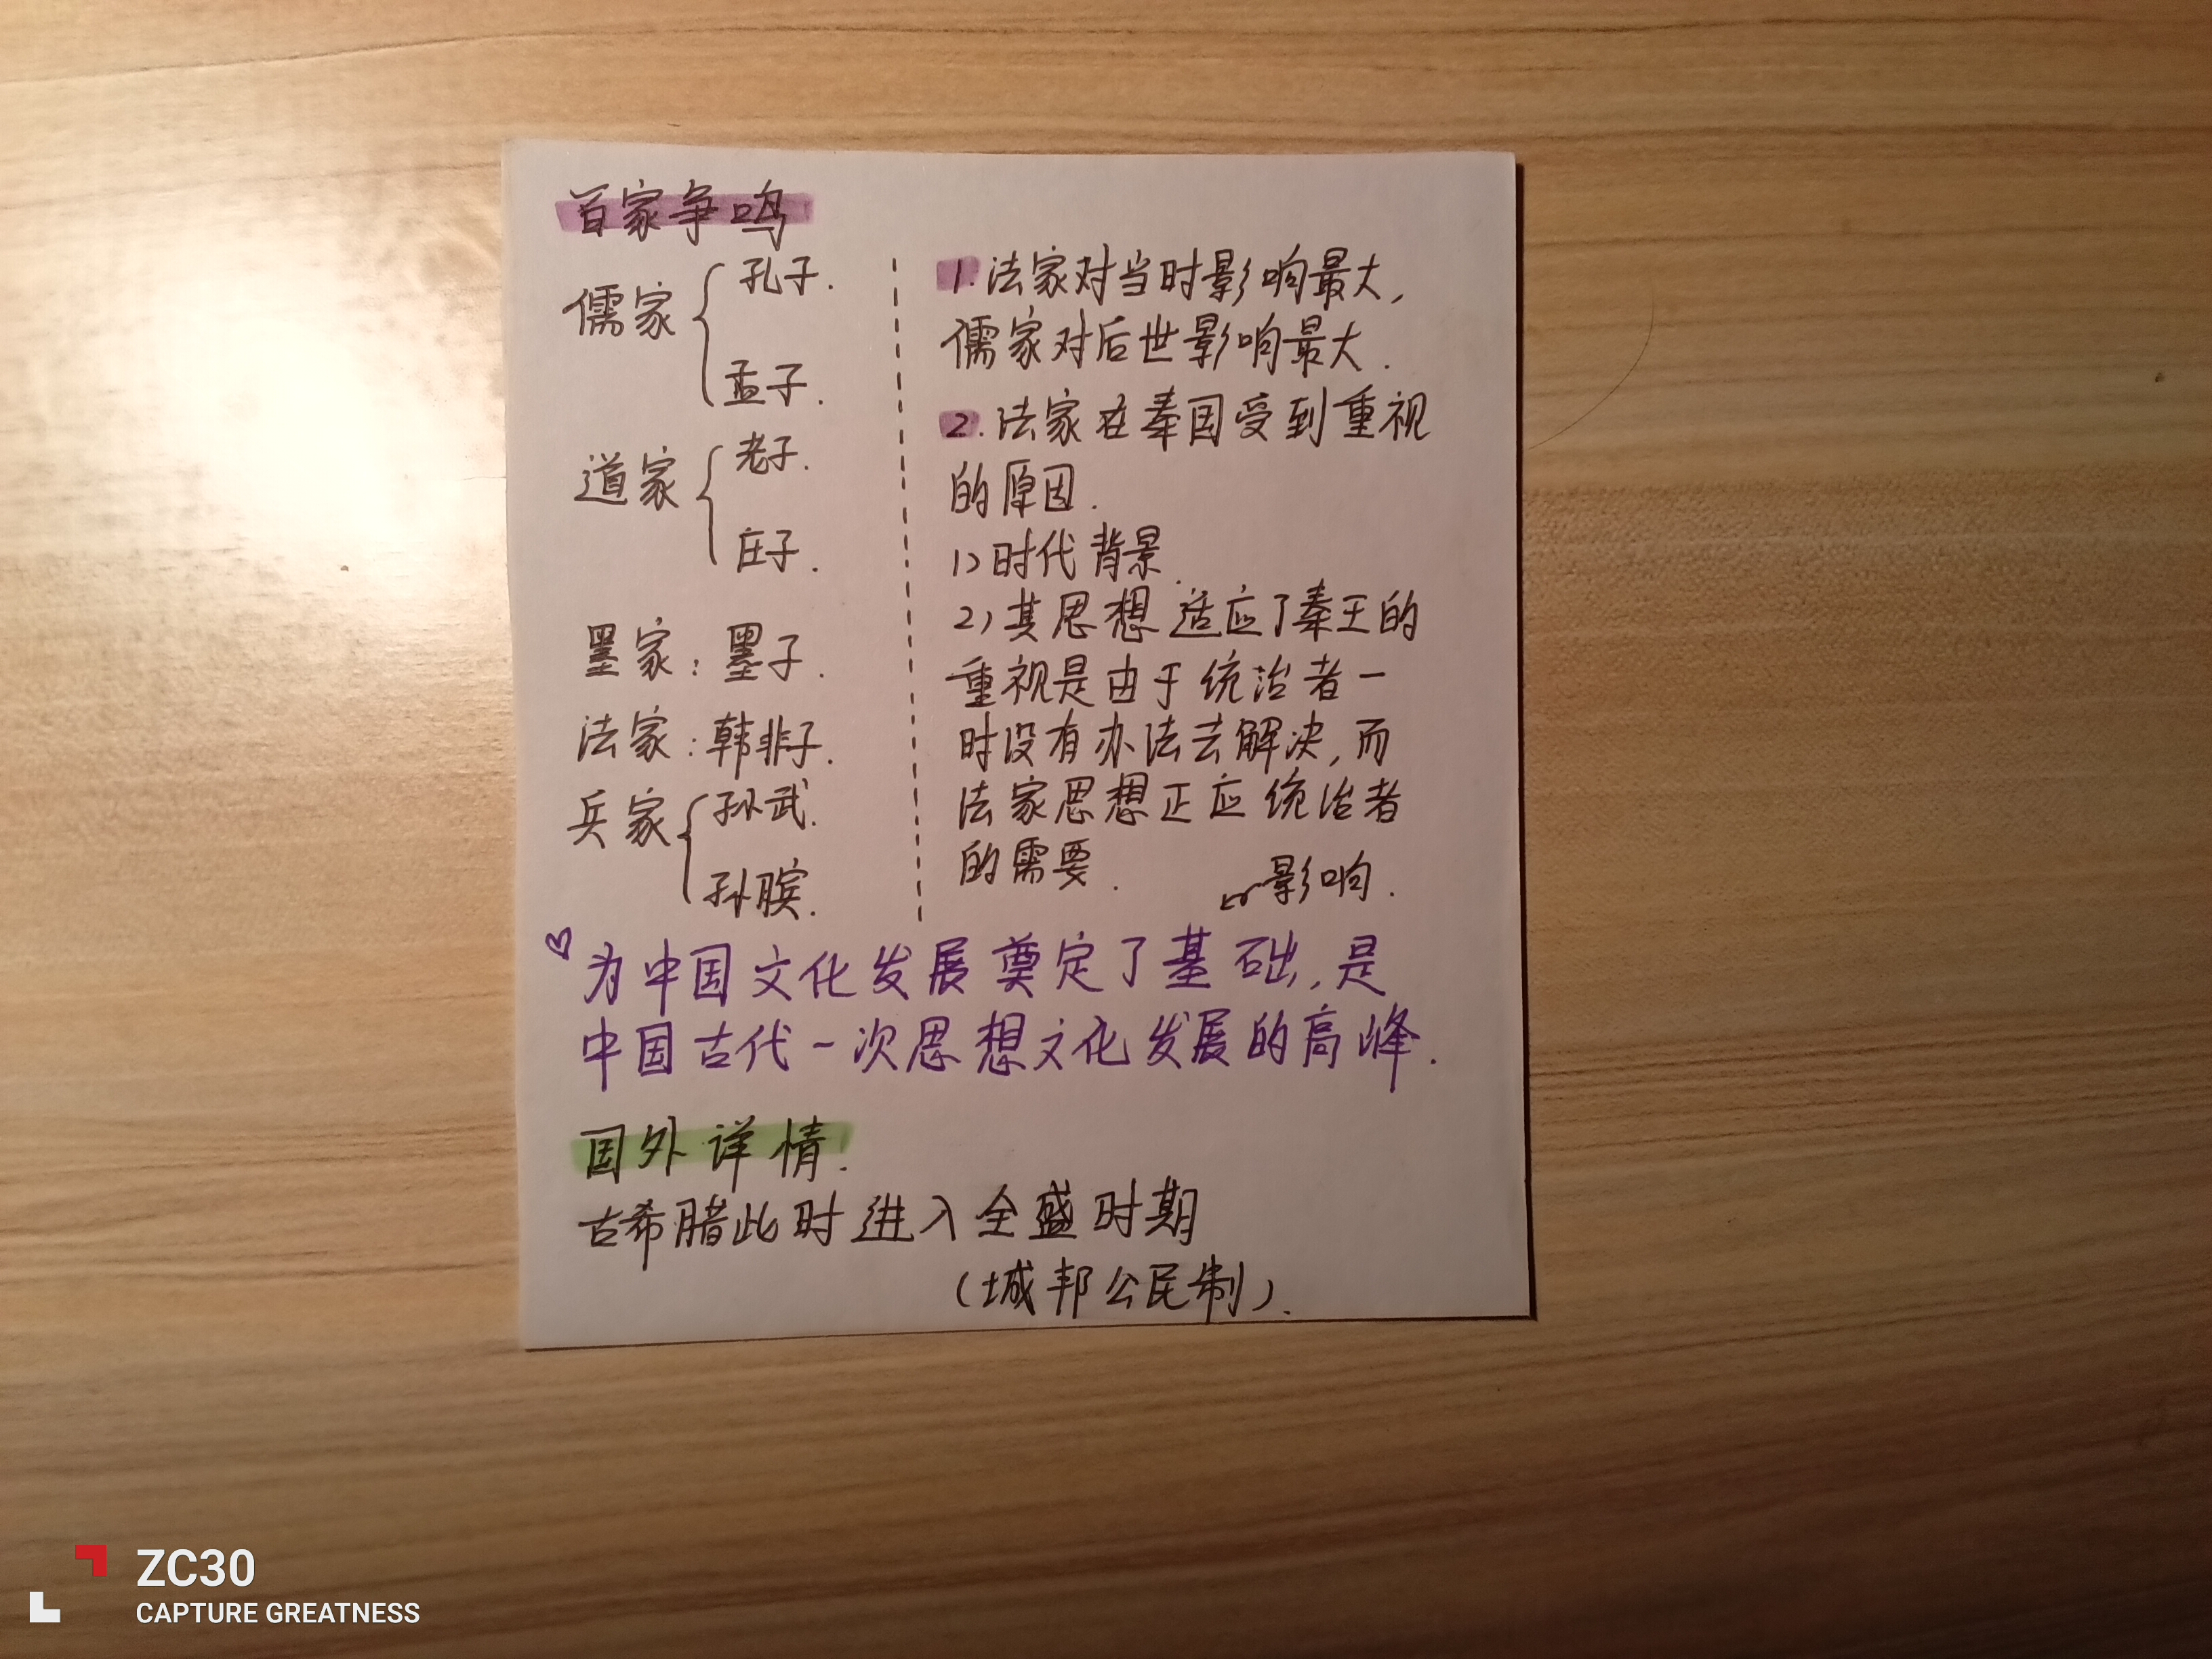 百家争鸣
儒家
孔子.
孟子.
道家
老子.
庄子.
墨家：墨子.
法家：韩非子.
兵家
孙武.
孙膑.
1.法家对当时影响最大,
儒家对后世影响最大.
2.法家在秦国受到重视
的原因.
1)时代背景.
2)其思想适应了秦王的
重视是由于统治者一
时没有办法去解决,而
法家思想正应统治者
的需要.
影响.
为中国文化发展奠定了基础,是
中国古代一次思想文化发展的高峰.
国外详情.
古希腊此时进入全盛时期
(城邦公民制).
ZC30
CAPTURE GREATNESS